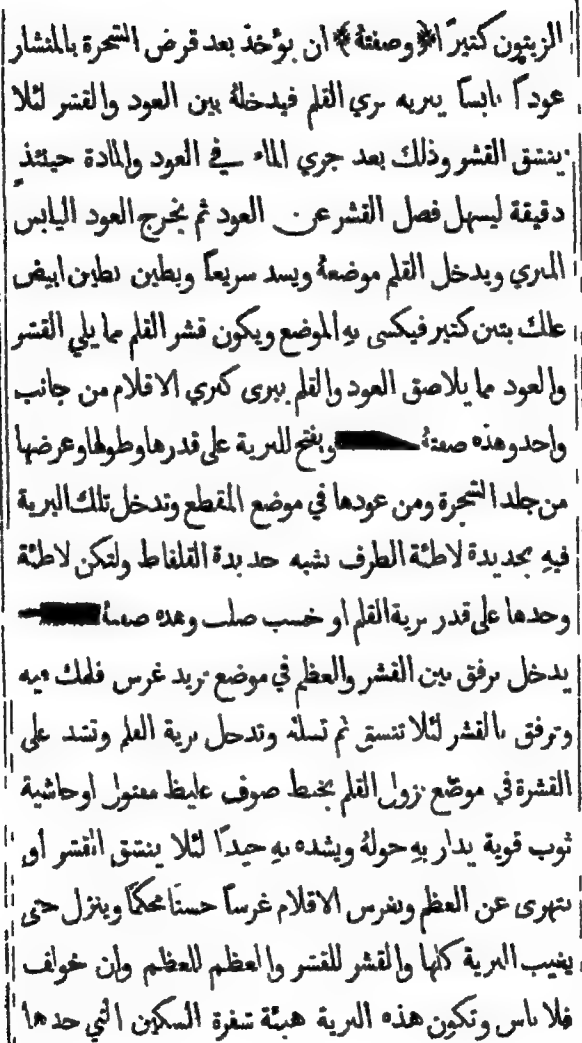 الزيتون كثيرًا ﴿وصفتهُ﴾ ان يؤخذ بعد قرض الشجرة بالمنشار
عودًا يابسًا يبريه بري القلم فيدخلهُ بين العود والقشر لئلا
ينشق القشر وذلك بعد جري الماء في العود والمادة حينئذٍ
دقيقة ليسهل فصل القشر عن العود ثم يخرج العود اليابس
المبري ويدخل القلم موضعهُ ويسد سريعًا ويطين بطين ابيض
علك بتبن كثير فيكسى بهِ الموضع ويكون قشر القلم مما يلي القشر
والعود مما يلاصق العود والقلم يبرى كبري الاقلام من جانب
واحد وهذه صفتهُ ويفتح للبرية على قدرها وطولها وعرضها
من جلد الشجرة ومن عودها في موضع المقطع وتدخل تلك البرية
فيهِ بحديدة لاطئة الطرف تشبه حديدة القلفاط ولتكن لاطئة
وحدها على قدر برية القلم او خشب صلب وهذه صفتهُ
يدخل برفق بين القشر والعظم في موضع تريد غرس قلمك فيه
وترفق بالقشر لئلا تنشق ثم تسلهُ وتدخل برية القلم وتشد على
القشرة في موضع نزول القلم بخيط صوف غليظ مفتول او حاشية
ثوب قوية يدار بهِ حولهُ ويشده بهِ جيدًا لئلا ينشق القشر او
يتهرى عن العظم ويغرس الاقلام غرسًا حسنًا محكمًا وينزل حتى
يغيب البرية كلها والقشر للقشر والعظم للعظم وان خولف
فلا باس وتكون هذه البرية هيئة شفرة السكين التي حدها